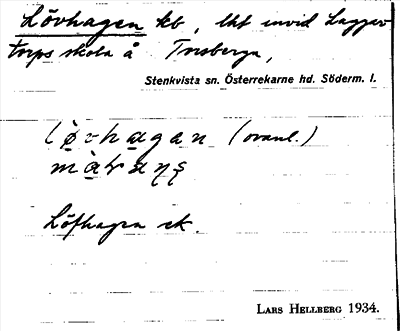 Lövhagen kb, lht invid Lagger
torps skola å Torsberga,
Stenkvista sn. Österrekarne hd. Söderm. l.
lövhagan (ovanl.)
Löfhagen ek.
LARS HELLBERG 1934.